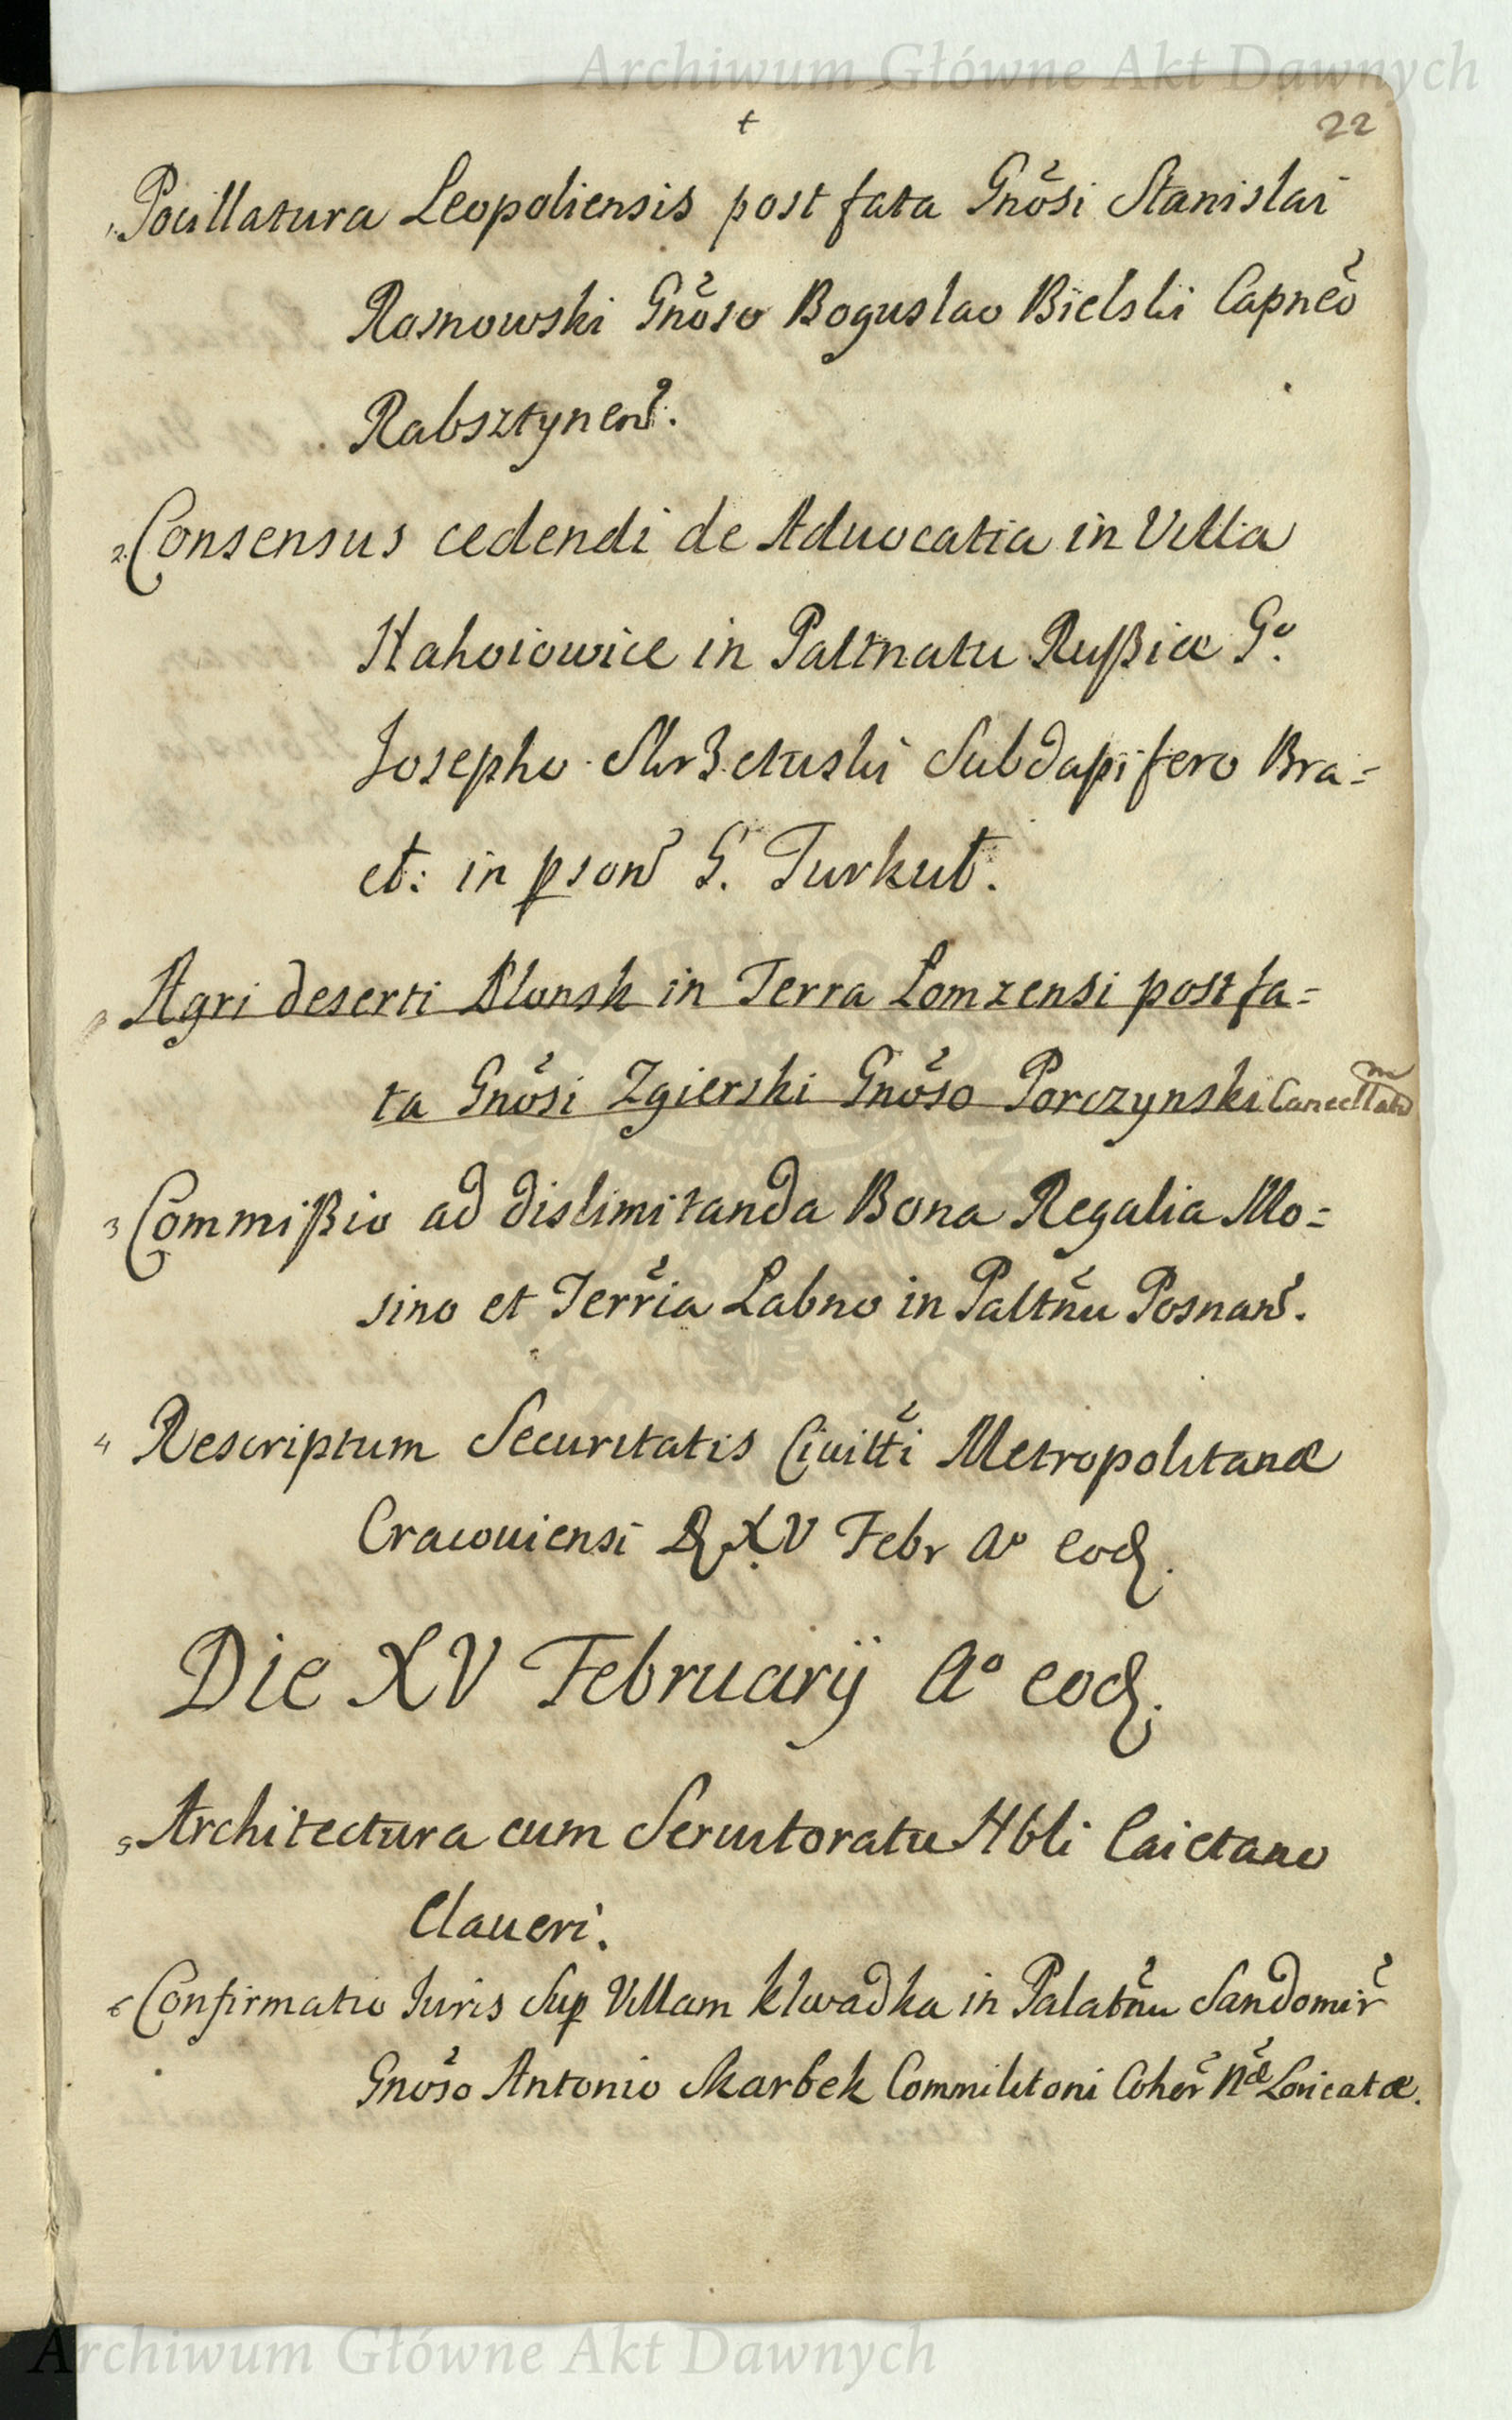 Archiwum Główne Akt Dawnych
22
1. Pocillatura Leopoliensis post fata Gnõsi Stanislai
Rosnowski Gnõso Boguslao Bielski Capneõ
Rabsztynen̄.
2. Consensus cedendi de Aduocatia in Villa
Hahoiowice in Paltnatu Rußiæ Gº.
Josepho Skrzetuski Subdapifero Bra=
ct: in pson̄ G. Turkuł.
Agri deserti Klonsk in Terra Lomzensi post fa=
ta Gnõsi Zgierski Gnõso Porczynski Cancellatm
3 Commißio ad dislimitanda Bona Regalia Mo=
sino et Terr̃ia Labno in Paltñu Posnan̄.
4 Rescriptum Securitatis Ciuitt̃i Metropolitanæ
Cracouiensi D XV Febr Aº eod.
Die XV Februarij Aº eod.
5 Architectura cum Seruitoratu Hbli Caietano
Claueri.
6 Confirmatio Iuris Sup Villam Klwadka in Palatñu Sandomir̃
Gnõso Antonio Skarbek Commilitoni Coher̃ Næ Loricatæ.
Archiwum Główne Akt Dawnych